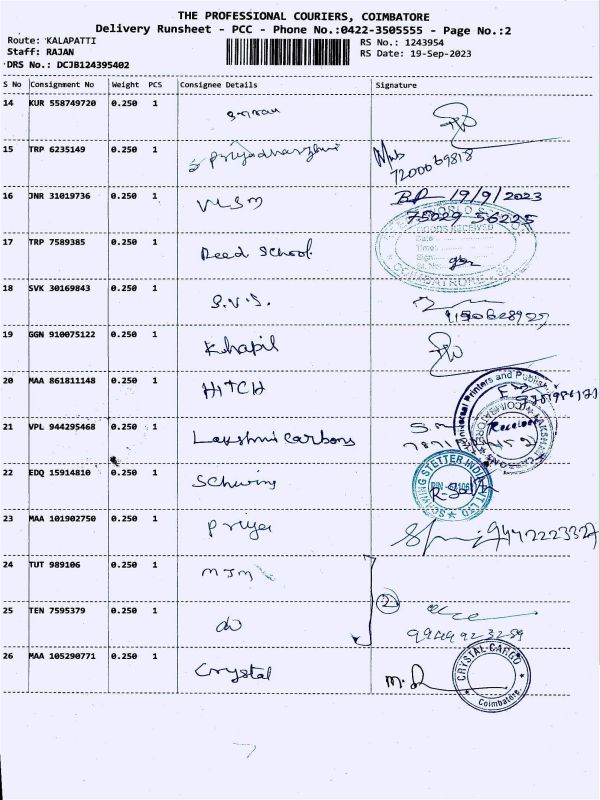 THE PROFESSIONAL COURIERS, COIMBATORE
Delivery Runsheet - PCC - Phone No.:0422-3505555 - Page No.:2
Route: KALAPATTI
Staff: RAJAN
DRS No.: DCJB124395402
RS No.: 1243954
RS Date: 19-Sep-2023
S No Consignment No Weight PCS Consignee Details Signature
14 KUR 558749720 0.250 1
15 TRP 6235149 0.250 1 S Priyadharshni
7200069818
16 JNR 31019736 0.250 1 VLSM
19/9/2023
75029 56225
GOODS RECEIVED
Date:
Time:
Sign:
COIMBATORE
17 TRP 7589385 0.250 1 Reed School
18 SVK 30169843 0.250 1 S.V.S.
19 GGN 910075122 0.250 1 Khapil
20 MAA 861811148 0.250 1 HITCH
Universal Printers and Publish
21 VPL 944295468 0.250 1 Lakshmi Carbons
S.M
Received
22 EDQ 15914810 0.250 1 Schwing
SCHWING STETTER INDIA PVT LTD
23 MAA 101902750 0.250 1 Priya
24 TUT 989106 0.250 1 MJM
25 TEN 7595379 0.250 1 do
2
26 MAA 105290771 0.250 1 Crystal
CRYSTAL CARGO
Coimbatore.